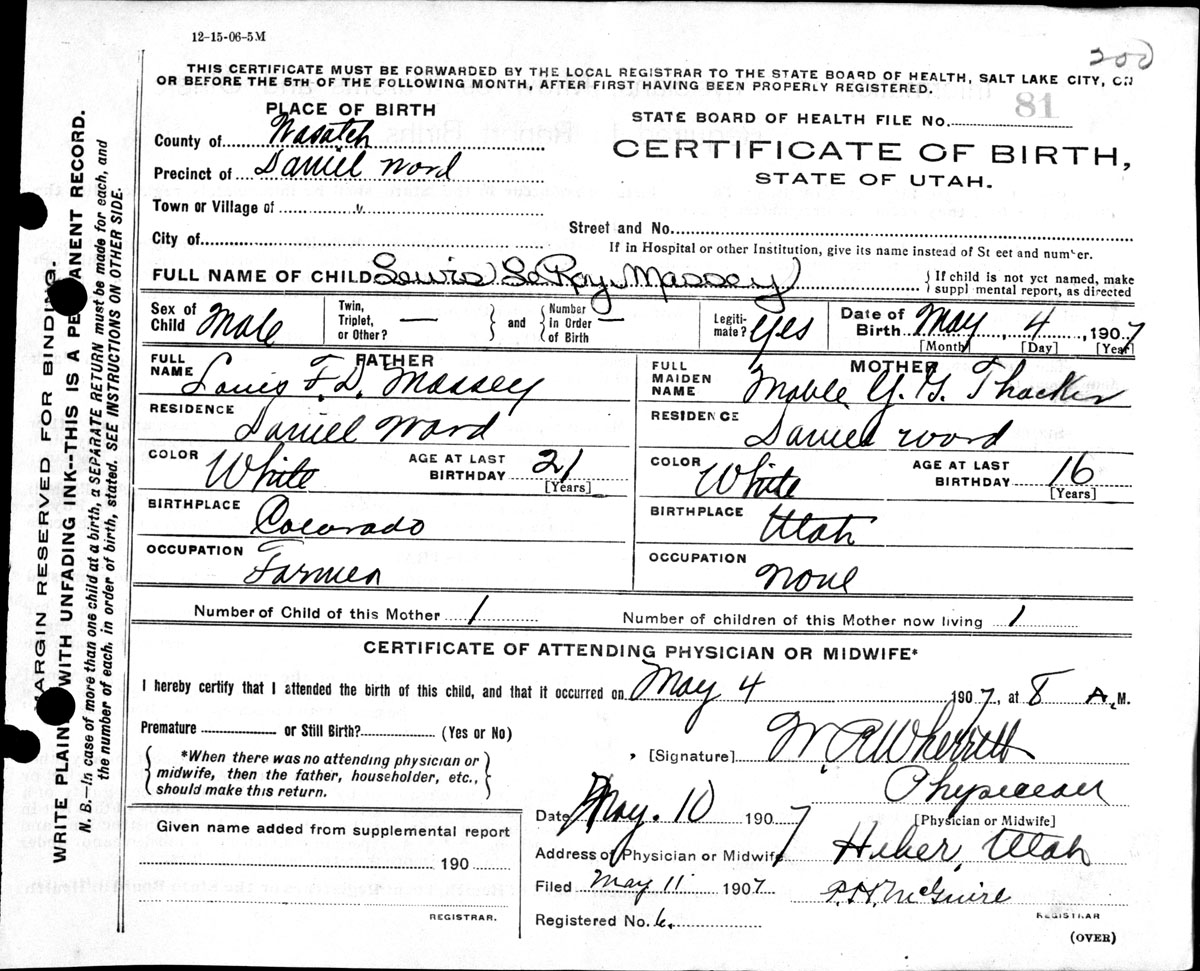 12-15-06-5M
200
THIS CERTIFICATE MUST BE FORWARDED BY THE LOCAL REGISTRAR TO THE STATE BOARD OF HEALTH, SALT LAKE CITY, ON
OR BEFORE THE 5TH OF THE FOLLOWING MONTH, AFTER FIRST HAVING BEEN PROPERLY REGISTERED.
PLACE OF BIRTH
County of Wasatch
Precinct of Daniel Word
Town or Village of
City of
STATE BOARD OF HEALTH FILE No. 81
CERTIFICATE OF BIRTH,
STATE OF UTAH.
Street and No.
If in Hospital or other Institution, give its name instead of St eet and number.
FULL NAME OF CHILD Lewis LeRoy Massey
{If child is not yet named, make suppl mental report, as directed
Sex of Child Male
Twin, Triplet, or Other? — } and { Number in Order of Birth —
Legiti-mate? Yes
Date of Birth May 4, 1907
[Month] [Day] [Year]
FATHER
FULL NAME Louis F. D. Massey
RESIDENCE Daniel Ward
COLOR White AGE AT LAST BIRTHDAY 21
[Years]
BIRTHPLACE Colorado
OCCUPATION Farmer
MOTHER
FULL MAIDEN NAME Mable Y. G. Thacker
RESIDENCE Daniel Word
COLOR White AGE AT LAST BIRTHDAY 16
[Years]
BIRTHPLACE Utah
OCCUPATION None
Number of Child of this Mother 1 Number of children of this Mother now living 1
CERTIFICATE OF ATTENDING PHYSICIAN OR MIDWIFE*
I hereby certify that I attended the birth of this child, and that it occurred on May 4 1907, at 8 A. M.
Premature or Still Birth? (Yes or No)
{ *When there was no attending physician or
midwife, then the father, householder, etc.,
should make this return. }
[Signature] W. R. Wherritt
Physician
[Physician or Midwife]
Date May. 10 1907
Address of Physician or Midwife Heber, Utah
Given name added from supplemental report
190
REGISTRAR.
Filed May 11 1907 P. H. McGuire
REGISTRAR
Registered No. 6.
(OVER)
MARGIN RESERVED FOR BINDING.
WRITE PLAIN WITH UNFADING INK--THIS IS A PE ANENT RECORD.
N. B.—In case of more than one child at a birth, a SEPARATE RETURN must be made for each, and
the number of each, in order of birth, stated. SEE INSTRUCTIONS ON OTHER SIDE.